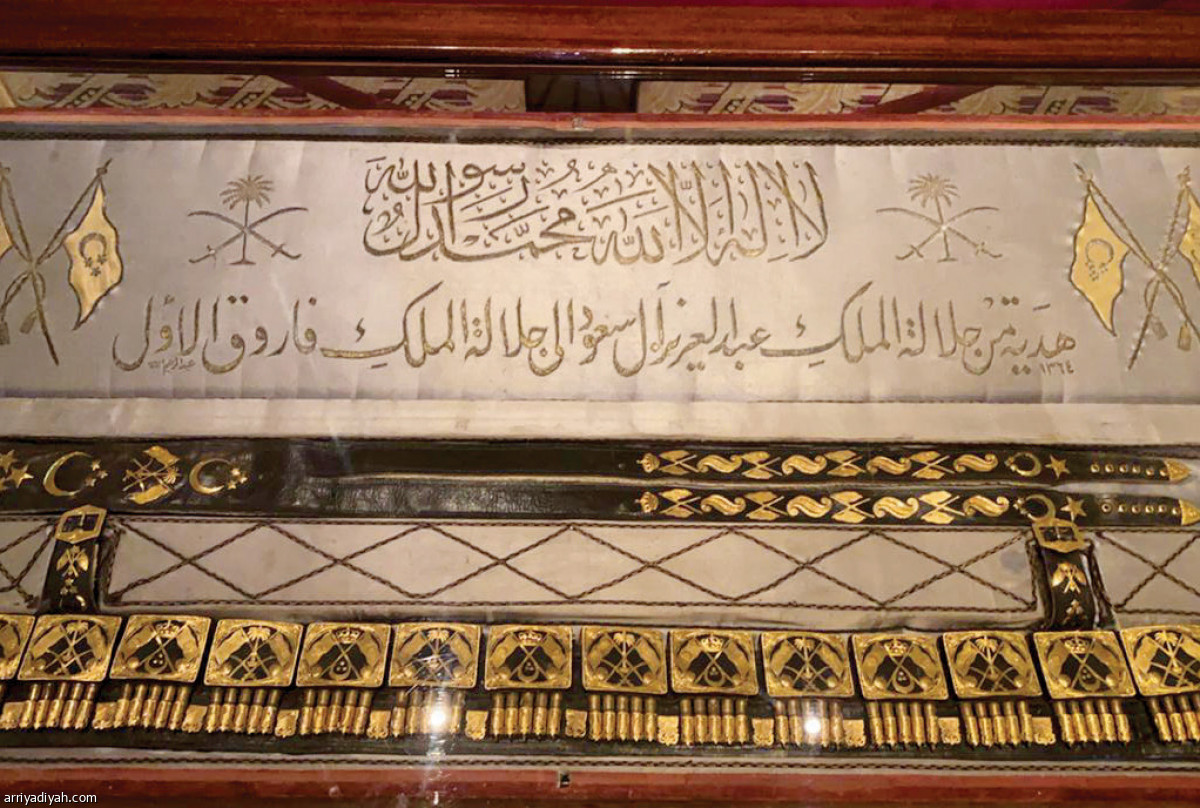 لا إله إلا الله محمد رسول الله
هدية من جلالة الملك عبد العزيز آل سعود إلى جلالة الملك فاروق الأول
١٣٦٤
arriyadiyah.com